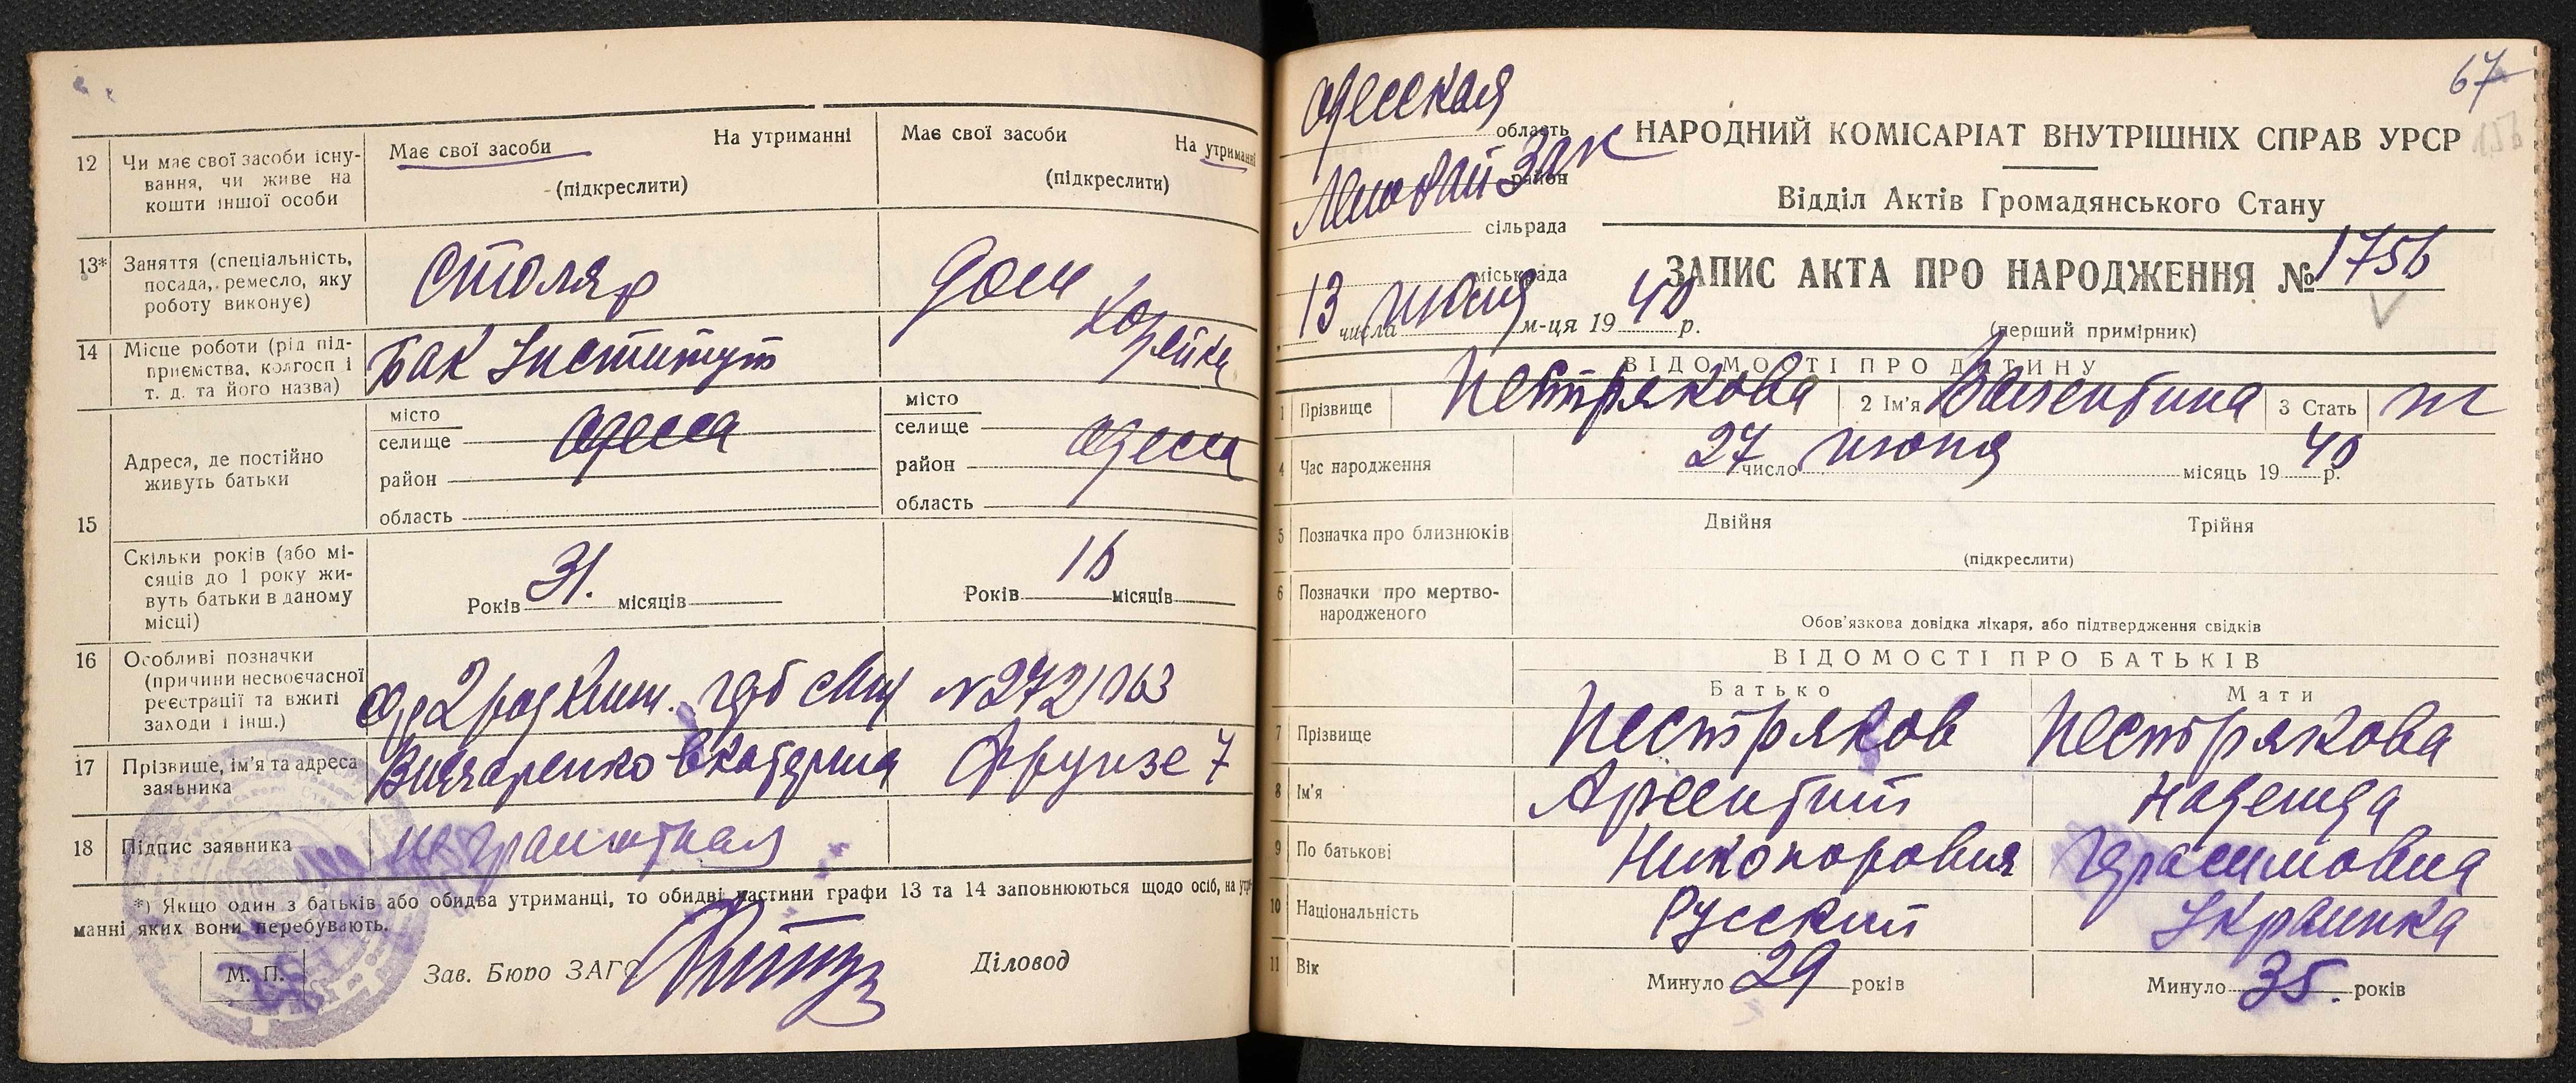 12 Чи має свої засоби існування, чи живе на кошти іншої особи
Має свої засоби На утриманні
(підкреслити)
Має свої засоби На утриманні
(підкреслити)
13* Заняття (спеціальність, посада, ремесло, яку роботу виконує)
Столяр
Дом Хозяйка
14 Місце роботи (рід підприємства, колгосп і т. д. та його назва)
Бак Институт
15 Адреса, де постійно живуть батьки
місто
селище
Одесса
район
область
місто
селище
Одесса
район
область
Скільки років (або місяців до 1 року живуть батьки в даному місці)
Років 31. місяців
Років 16 місяців
16 Особливі позначки (причини несвоєчасної реєстрації та вжиті заходи і інш.)
2 род №272/063
17 Прізвище, ім'я та адреса заявника
Екатерина Фрунзе 7
18 Підпис заявника
неграмотная
*) Якщо один з батьків або обидва утриманці, то обидві частини графи 13 та 14 заповнюються щодо осіб, на утри-
манні яких вони перебувають.
М. П.
Зав. Бюро ЗАГС
Діловод
67
Одесская
область
район
сільрада
міськрада
13 числа июля м-ця 1940 р.
НАРОДНИЙ КОМІСАРІАТ ВНУТРІШНІХ СПРАВ УРСР
Відділ Актів Громадянського Стану
ЗАПИС АКТА ПРО НАРОДЖЕННЯ № 1756
(перший примірник)
ВІДОМОСТІ ПРО ДИТИНУ
1 Прізвище Пестрякова 2 Ім'я Валентина 3 Стать ж
4 Час народження 27 число июня місяць 1940 р.
5 Позначка про близнюків Двійня Трійня
(підкреслити)
6 Позначки про мертвонародженого
Обов'язкова довідка лікаря, або підтвердження свідків
ВІДОМОСТІ ПРО БАТЬКІВ
Батько Мати
7 Прізвище Пестряков Пестрякова
8 Ім'я Арсентий Надежда
9 По батькові Никонорович Герасимовна
10 Національність Русский Украинка
11 Вік Минуло 29 років Минуло 35. років